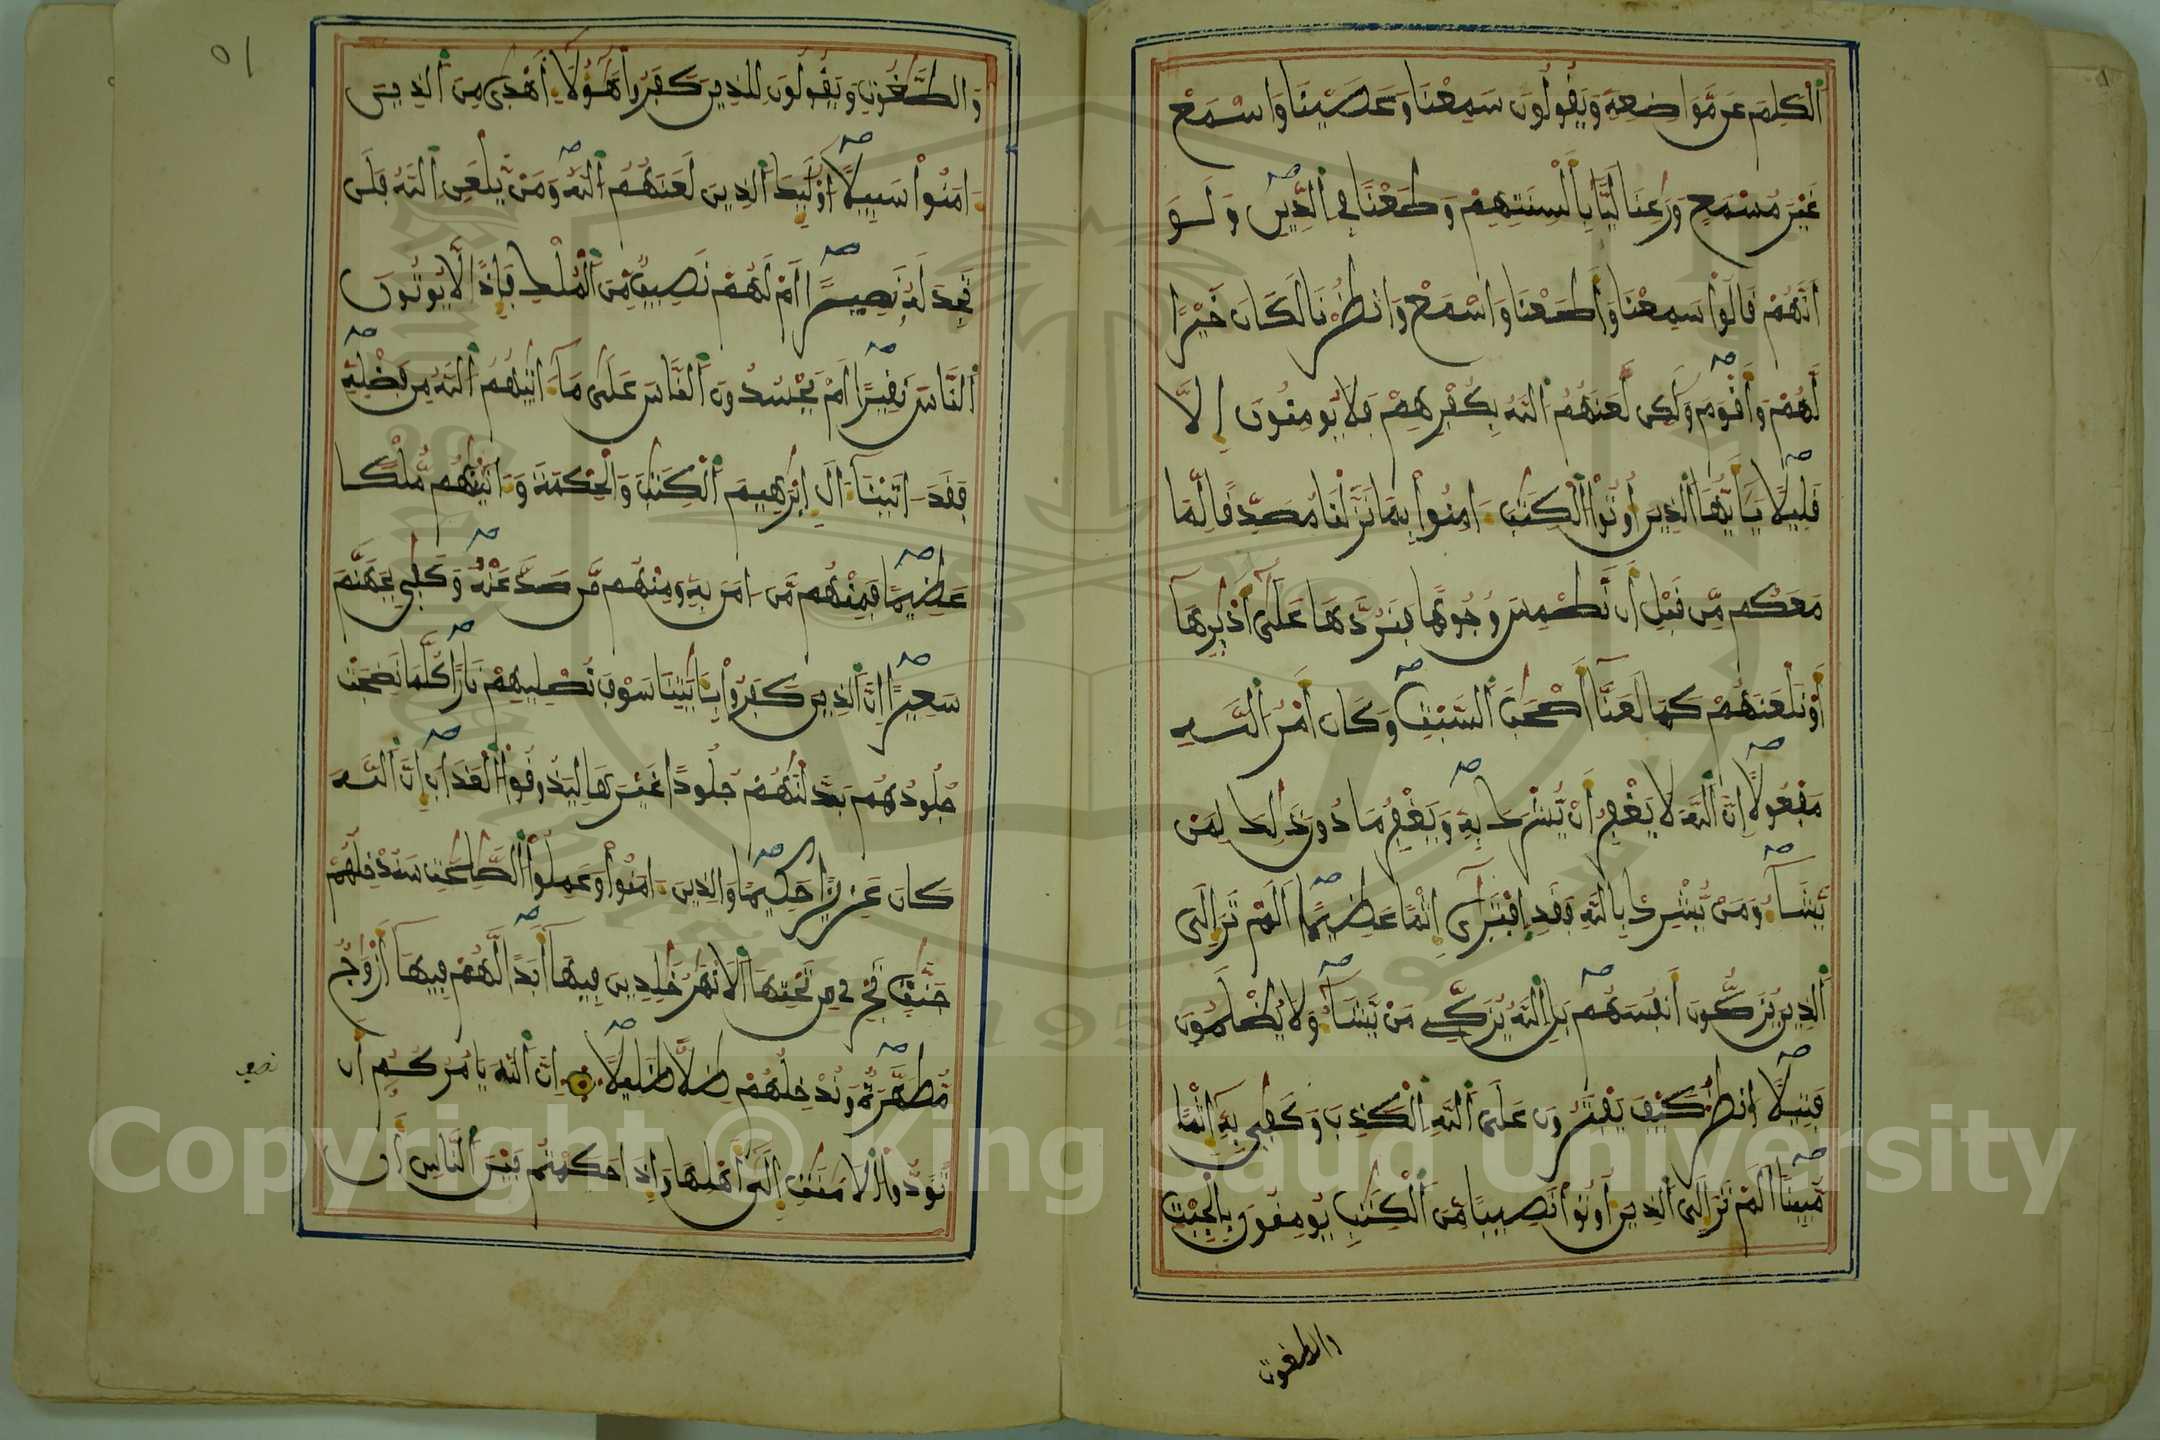 الكلم عن مواضعه ويقولون سمعنا وعصينا واسمع
غير مسمع ورعنا ليا بألسنتهم وطعنا في الدين ولو
انهم قالوا سمعنا وأطعنا واسمع وانظرنا لكان خيرا
لهم وأقوم ولكن لعنهم الله بكفرهم فلا يومنون إلا
قليلا يأيها الذين أوتوا الكتب ءامنوا بما نزلنا مصدقا لما
معكم من قبل أن نطمس وجوها فنردها على أدبرها
أو نلعنهم كما لعنا أصحب السبت وكان أمر الله
مفعولا إن الله لا يغفر أن يشرك به ويغفر ما دون ذلك لمن
يشآء ومن يشرك بالله فقد افترى إثما عظيما ألم تر إلى
الذين يزكون أنفسهم بل الله يزكي من يشآء ولا يظلمون
فتيلا انظر كيف يفترون على الله الكذب وكفى به إثما
مبينا ألم تر إلى الذين أوتوا نصيبا من الكتب يومنون بالجبت
والطغوت
٥١
والطغوت ويقولون للذين كفروا هؤلا أهدى من الذين
ءامنوا سبيلا أوليك الذين لعنهم الله ومن يلعن الله فلن
تجد له نصيرا أم لهم نصيب من الملك فإذا لا يوتون
الناس نقيرا أم يحسدون الناس على مآ ءاتيهم الله من فضله
فقد ءاتينآ ءال إبرهيم الكتب والحكمة وءاتينهم ملكا
عظيما فمنهم من ءامن به ومنهم من صد عنه وكفى بجهنم
سعيرا إن الذين كفروا بئايتنا سوف نصليهم نارا كلما نضجت
جلودهم بدلنهم جلودا غيرها ليذوقوا العذاب إن الله
كان عزيزا حكيما والذين ءامنوا وعملوا الصلحت سندخلهم
جنت تجري من تحتها الأنهر خلدين فيهآ أبدا لهم فيهآ أزوج
مطهرة وندخلهم ظلا ظليلا إن الله يامركم أن
تؤدوا الأمنت إلى أهلها وإذا حكمتم بين الناس أن
Copyright © King Saud University